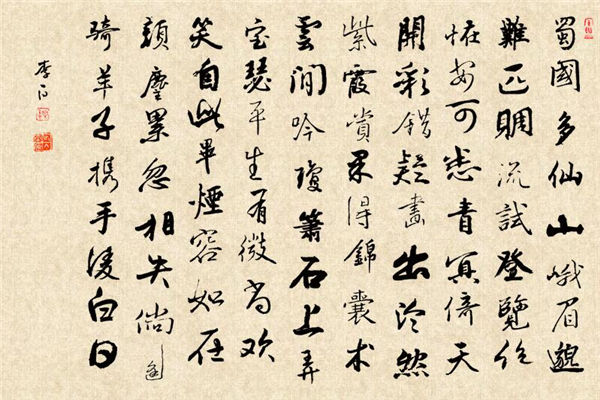 蜀國多仙山峨眉邈
難匹賙流試登覽
怪安可悉青冥倚天
開彩錯疑畫出泠然
紫霞賞果得錦囊术
雲间吟瓊簫石上弄
宝瑟平生有微尚欢
笑自此畢煙容如在
顏塵累忽相失倘逢
騎羊子携手凌白日
李白